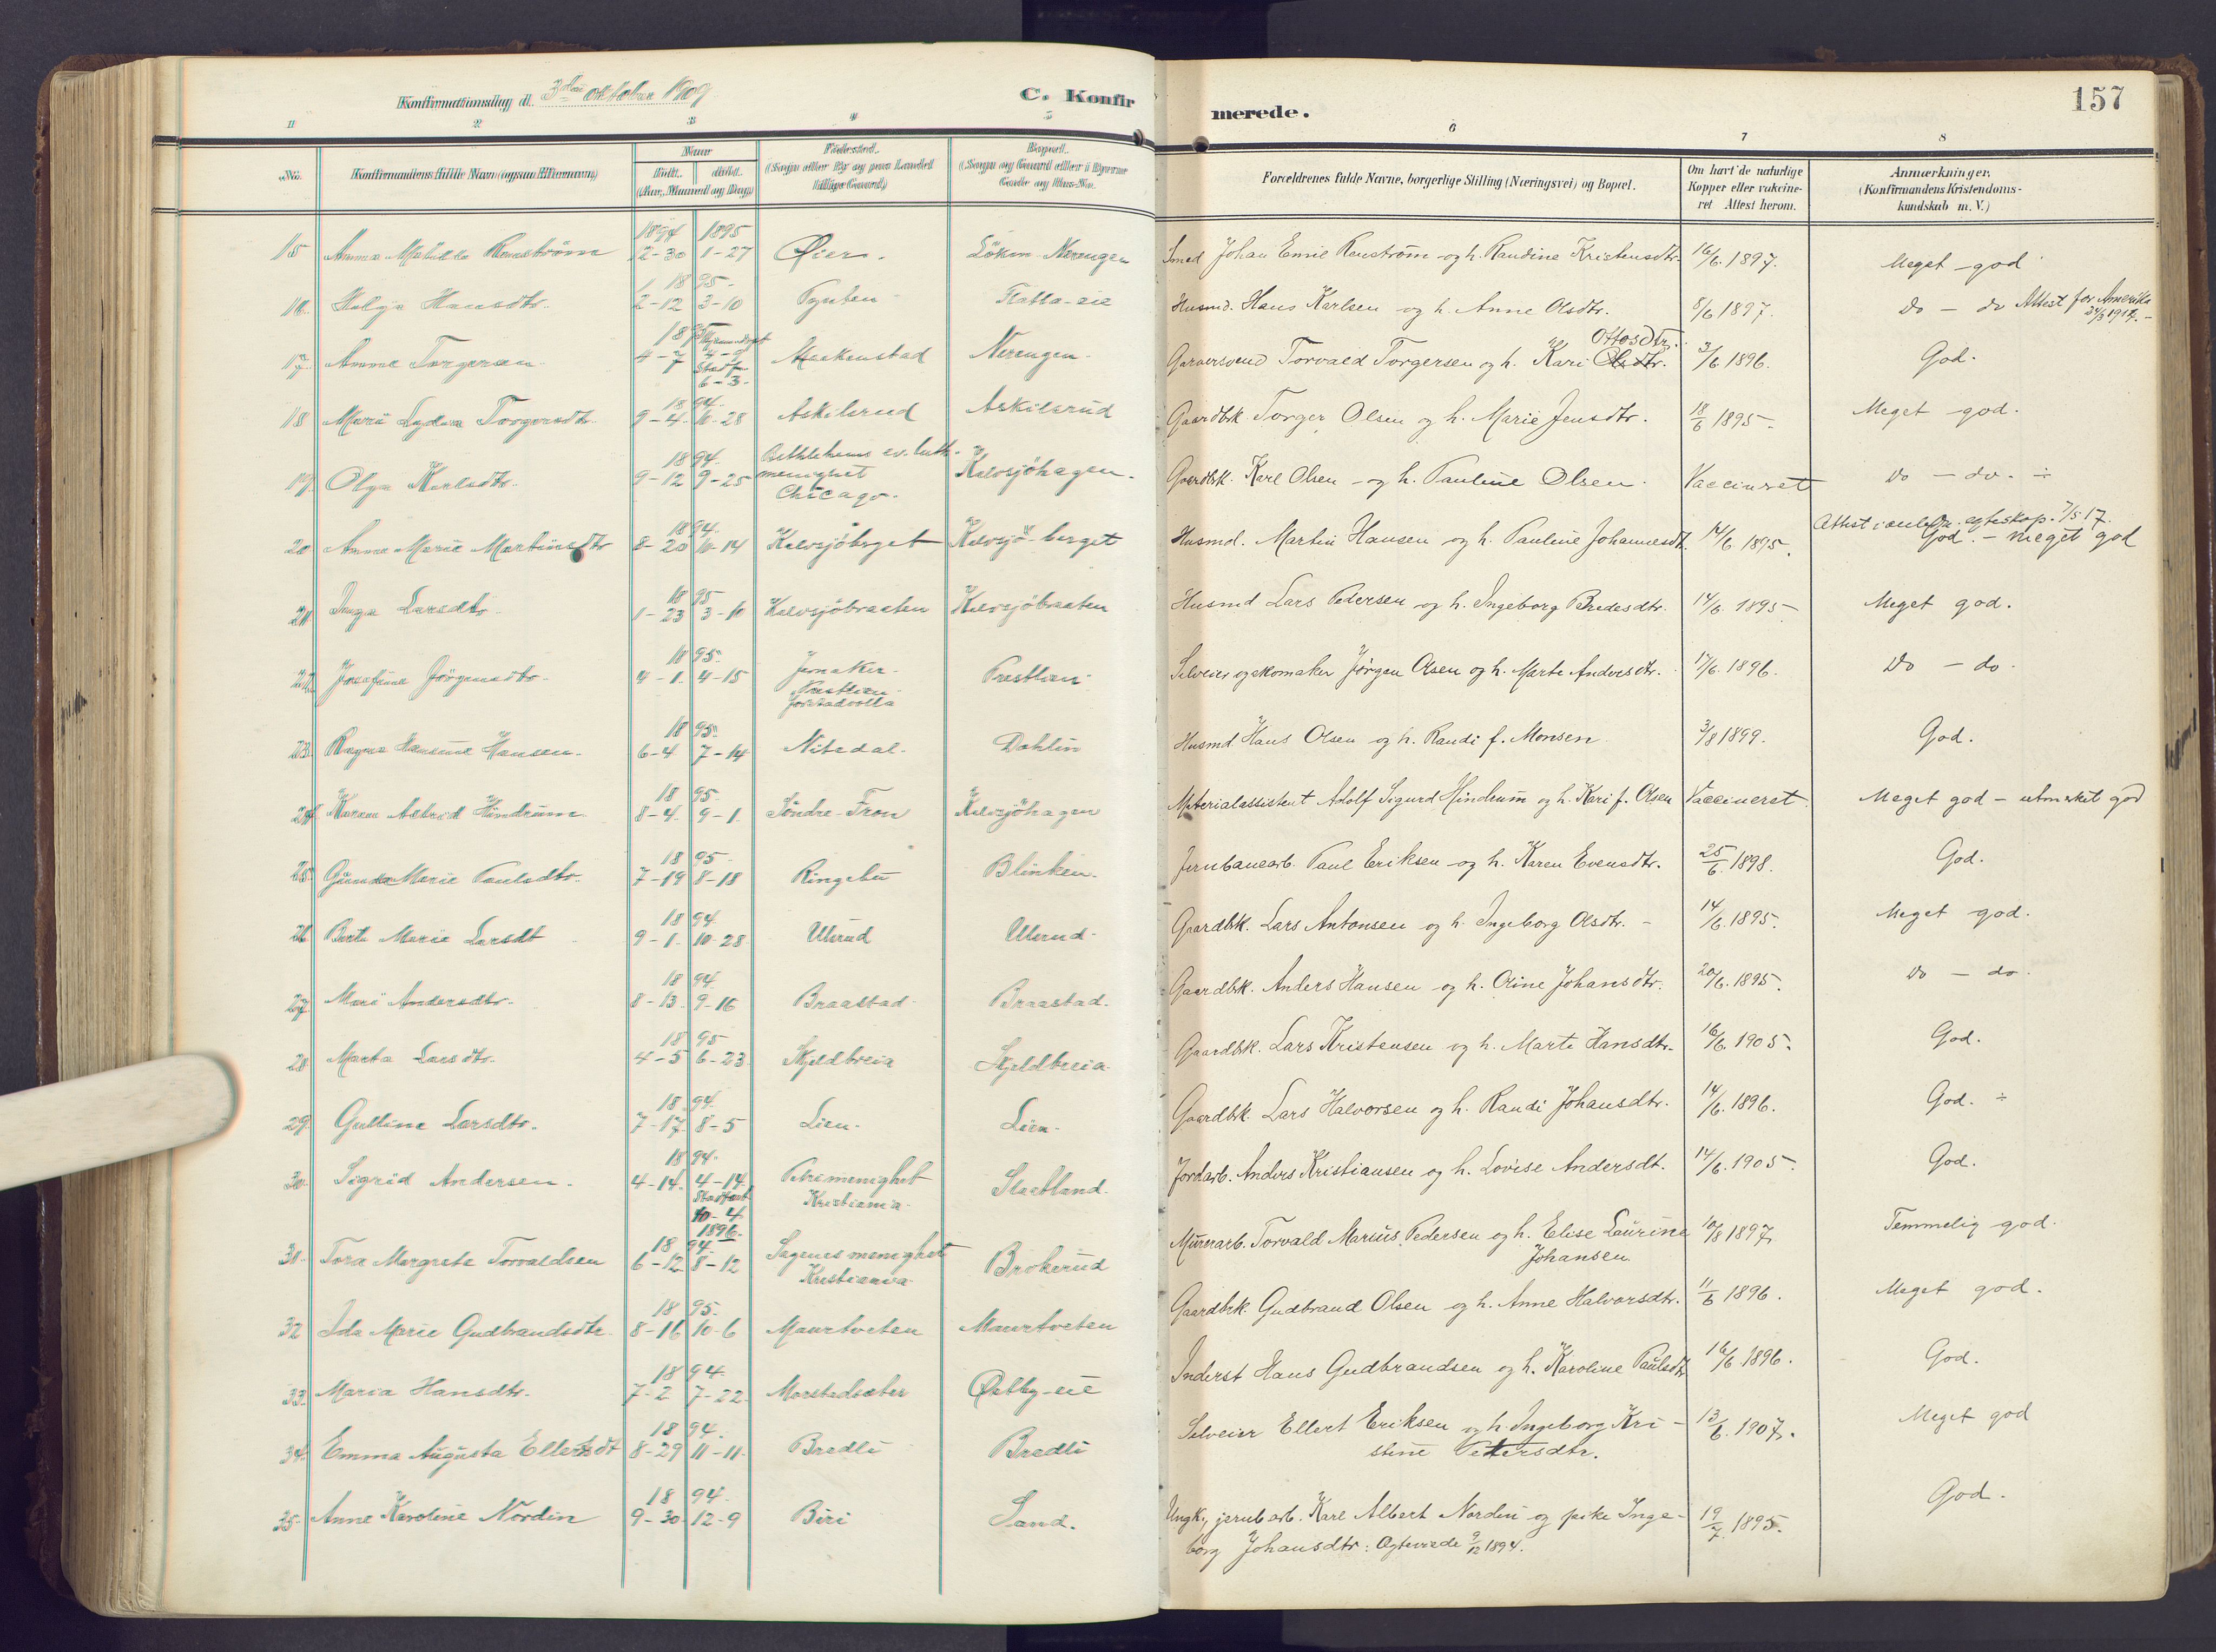 Konfirmationsdag d. 3die oktober 1909 C. Konfirmerede. 157
1 2 3 4 5 6 7 8
No. Konfirmandens fulde Navn (ogsaa Efternavn) Naar Født. døbt. (Aar, Maaned og Dag) Fødested. (Sogn eller By og paa Landet tillige Gaard) Bopæl. (Sogn og Gaard eller i Byerne Gade og Hus-No. Forældrenes fulde Navne, borgerlige Stilling (Næringsvei) og Bopæl. Om havt de naturlige Kopper eller vakcineret Attest herom. Anmærkninger. (Konfirmandens Kristendomskundskab m. V.)
15 Anna Matilde Renström 1894 12-30 1895 1-27 Øier. Löken-Nerengen Smed Johan Emil Renström og h. Randine Kristensdtr. 16/6 1897. Meget god
16. Helga Hansdtr. 1895 2-12 3-10 Flatla-eie Husmd. Hans Karlsen og h. Anne Olsdtr. 8/6 1897. do - do Attest for Amerika 1914.
17. Anne Torgersen 4-7 Stadf. 6-3 Nerengen. Garversvend Torvald Torgersen og h. Kari Olsdtr. Ottosdtr. 3/6 1896. God.
18 Mari Lydia Torgersdtr. 1894. 9-4. 10-28 Askilsrud Askilsrud Gaardbk. Torger Olsen og h. Marie Jensdtr. 18/6 1895. Meget god.
19. Olga Karlsdtr. 1894. 9-12 9-25 Bethlehems ev. luth. menighet Chicago. Kalvsjöhagen. Gaardbk. Karl Olsen og h. Pauline Olsen. Vaccineret do - do. ÷
20 Anna Marie Martinsdtr 1894. 8-20 10-14 Kalvsjöberget Kalvsjö-berget Husmd. Martin Hansen og h. Pauline Johannesdt. 14/6 1895. Attest i anledn. egteskap. 7/5 17. God. - meget god
21 Inga Larsdtr. 1895 1-23 3-10 Kalvsjöbraaten Kalvsjöbraaten Husmd Lars Pedersen og h. Ingeborg Bredesdtr. 14/6. 1895 Meget god.
22. Josefine Jörgensdtr. 1895. 4-1. 4-15 Jevnaker. Prestlien Prestlien Selveier og skomaker Jörgen Olsen og h. Marte Andersdtr. 17/6. 1896. Do - do.
23. Ragna Hansine Hansen. 1895. 6-4 7-14 Nitedal. Dahlin Husmd Hans Olsen og h. Randi f. Monsen 3/8 1899. God.
24 Karen Astrid Hindrum 1895. 8-4. 9-1. Söndre-Fron Kalvsjöhagen Materialassistent Adolf Sigurd Hindrum og h. Kari f. Olsen Vaccineret Meget god - utmerket god
25. Gunda Marie Paulsdtr. 1895 7-19 8-18 Ringebu Blinken. Jernbanearb. Paul Eriksen og h. Karen Evensdtr. 25/6. 1898. God.
26 Berte Marie Larsdt 1894. 9-1. 10-28 Ullerud Ullerud. Gaardbk. Lars Antonsen og h. Ingeborg Olsdtr. 14/6. 1895. Meget god.
27. Mari Andersdtr. 1894. 8-13. 9-16 Braastad Braastad. Gaardbk. Anders Hansen og h. Oline Johansdtr. 20/6. 1895. do - do.
28 Marta Larsdtr. 1895 4-5 6-23 Skjeldbreia Skjeldbreia Gaardbk. Lars Kristensen og h. Marte Hansdtr. 16/6. 1905. God.
29. Gulline Larsdtr. 1894. 7-17. 8-5 Lien. Lien Gaardbk. Lars Halvorsen og h. Randi Johansdtr. 14/6. 1896. God. ÷
30. Sigrid Andersen. 1894. 4-14. 4-14. Stadfæst 10-4 1896. Petrimenighet Kristiania Slaatland. Jordarb. Anders Kristiansen og h. Lovise Andersdt. 14/6. 1905. God.
31. Tora Margrete Torvaldsen 1894 6-12 8-12 Sagenes menighet Kristiania Brökerud Murerarb. Torvald Marius Pedersen og h. Elise Laurine Johansen 10/8 1897 Temmelig god.
32 Ida Marie Gudbrandsdtr. 1895. 8-16 10-6 Maurtveten Maurtveten Gaardbrk. Gudbrand Olsen og h. Anne Halvorsdtr. 11/6 1896. Meget god.
33. Maria Hansdtr. 1894. 7-2 7-22. Morstadsæter Østby-eie Inderst Hans Gudbrandsen og h. Karoline Paulsdtr. 16/6 1896. God.
34. Emma Augusta Ellertsdt 1894. 8-29 11-11. Bredli Bredli Selveier Ellert Eriksen og h. Ingeborg Kristine Pettersdtr. 13/6. 1907. Meget god
35. Anne Karoline Nordin 1894. 9-30 12-9 Biri Sand. Ungk., jernb.arb. Karl Albert Nordin og pike Ingeborg Johansdtr: Egteviede 9/12 1894. 19/7. 1895. God.